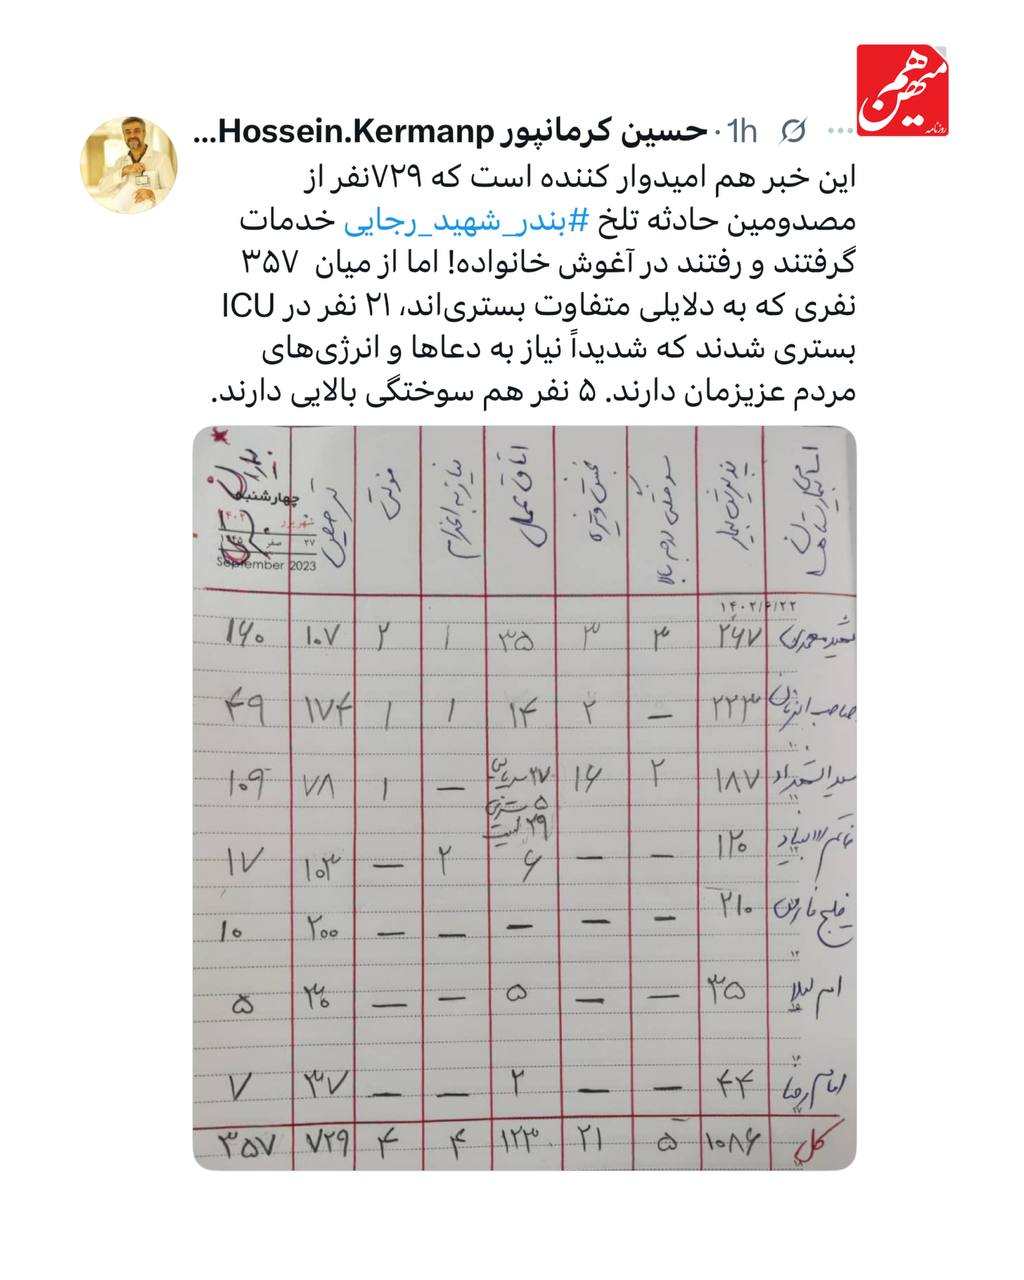 هم میهن
روزنامه
حسین کرمانپور Hossein.Kermanp... · 1h
این خبر هم امیدوار کننده است که ۷۲۹نفر از
مصدومین حادثه تلخ #بندر_شهید_رجایی خدمات
گرفتند و رفتند در آغوش خانواده! اما از میان ۳۵۷
نفری که به دلایلی متفاوت بستری‌اند، ۲۱ نفر در ICU
بستری شدند که شدیداً نیاز به دعاها و انرژی‌های
مردم عزیزمان دارند. ۵ نفر هم سوختگی بالایی دارند.
اسامی بیمارستانها پذیرش بیمار سوختگی درجه بالا بخش ویژه اتاق عمل نیاز به اعزام فوتی ترخیص
چهارشنبه
شهریور ۱۴۰۲
۲۷ صفر ۱۴۴۵
September 2023
۱۴۰۲/۶/۲۲
شهید محمدی ۲۶۷ ۳ ۳ ۳۵ ۱ ۲ ۱۰۷ ۱۶۰
صاحب الزمان ۲۲۳ — ۲ ۱۴ ۱ ۱ ۱۷۴ ۴۹
سید الشهداء ۱۸۷ ۲ ۱۶ ۲۷ سرپایی — ۱ ۷۸ ۱۰۹
۵ بستری
۲۹
خاتم الانبیاء ۱۲۰ — — ۶ ۲ — ۱۰۳ ۱۷
خلیج فارس ۲۱۰ — — — — — ۲۰۰ ۱۰
ام لیلا ۳۵ — — ۵ — — ۳۰ ۵
امام رضا ۴۴ — — ۲ — — ۳۷ ۷
کل ۱۰۸۶ ۵ ۲۱ ۱۲۳ ۴ ۴ ۷۲۹ ۳۵۷